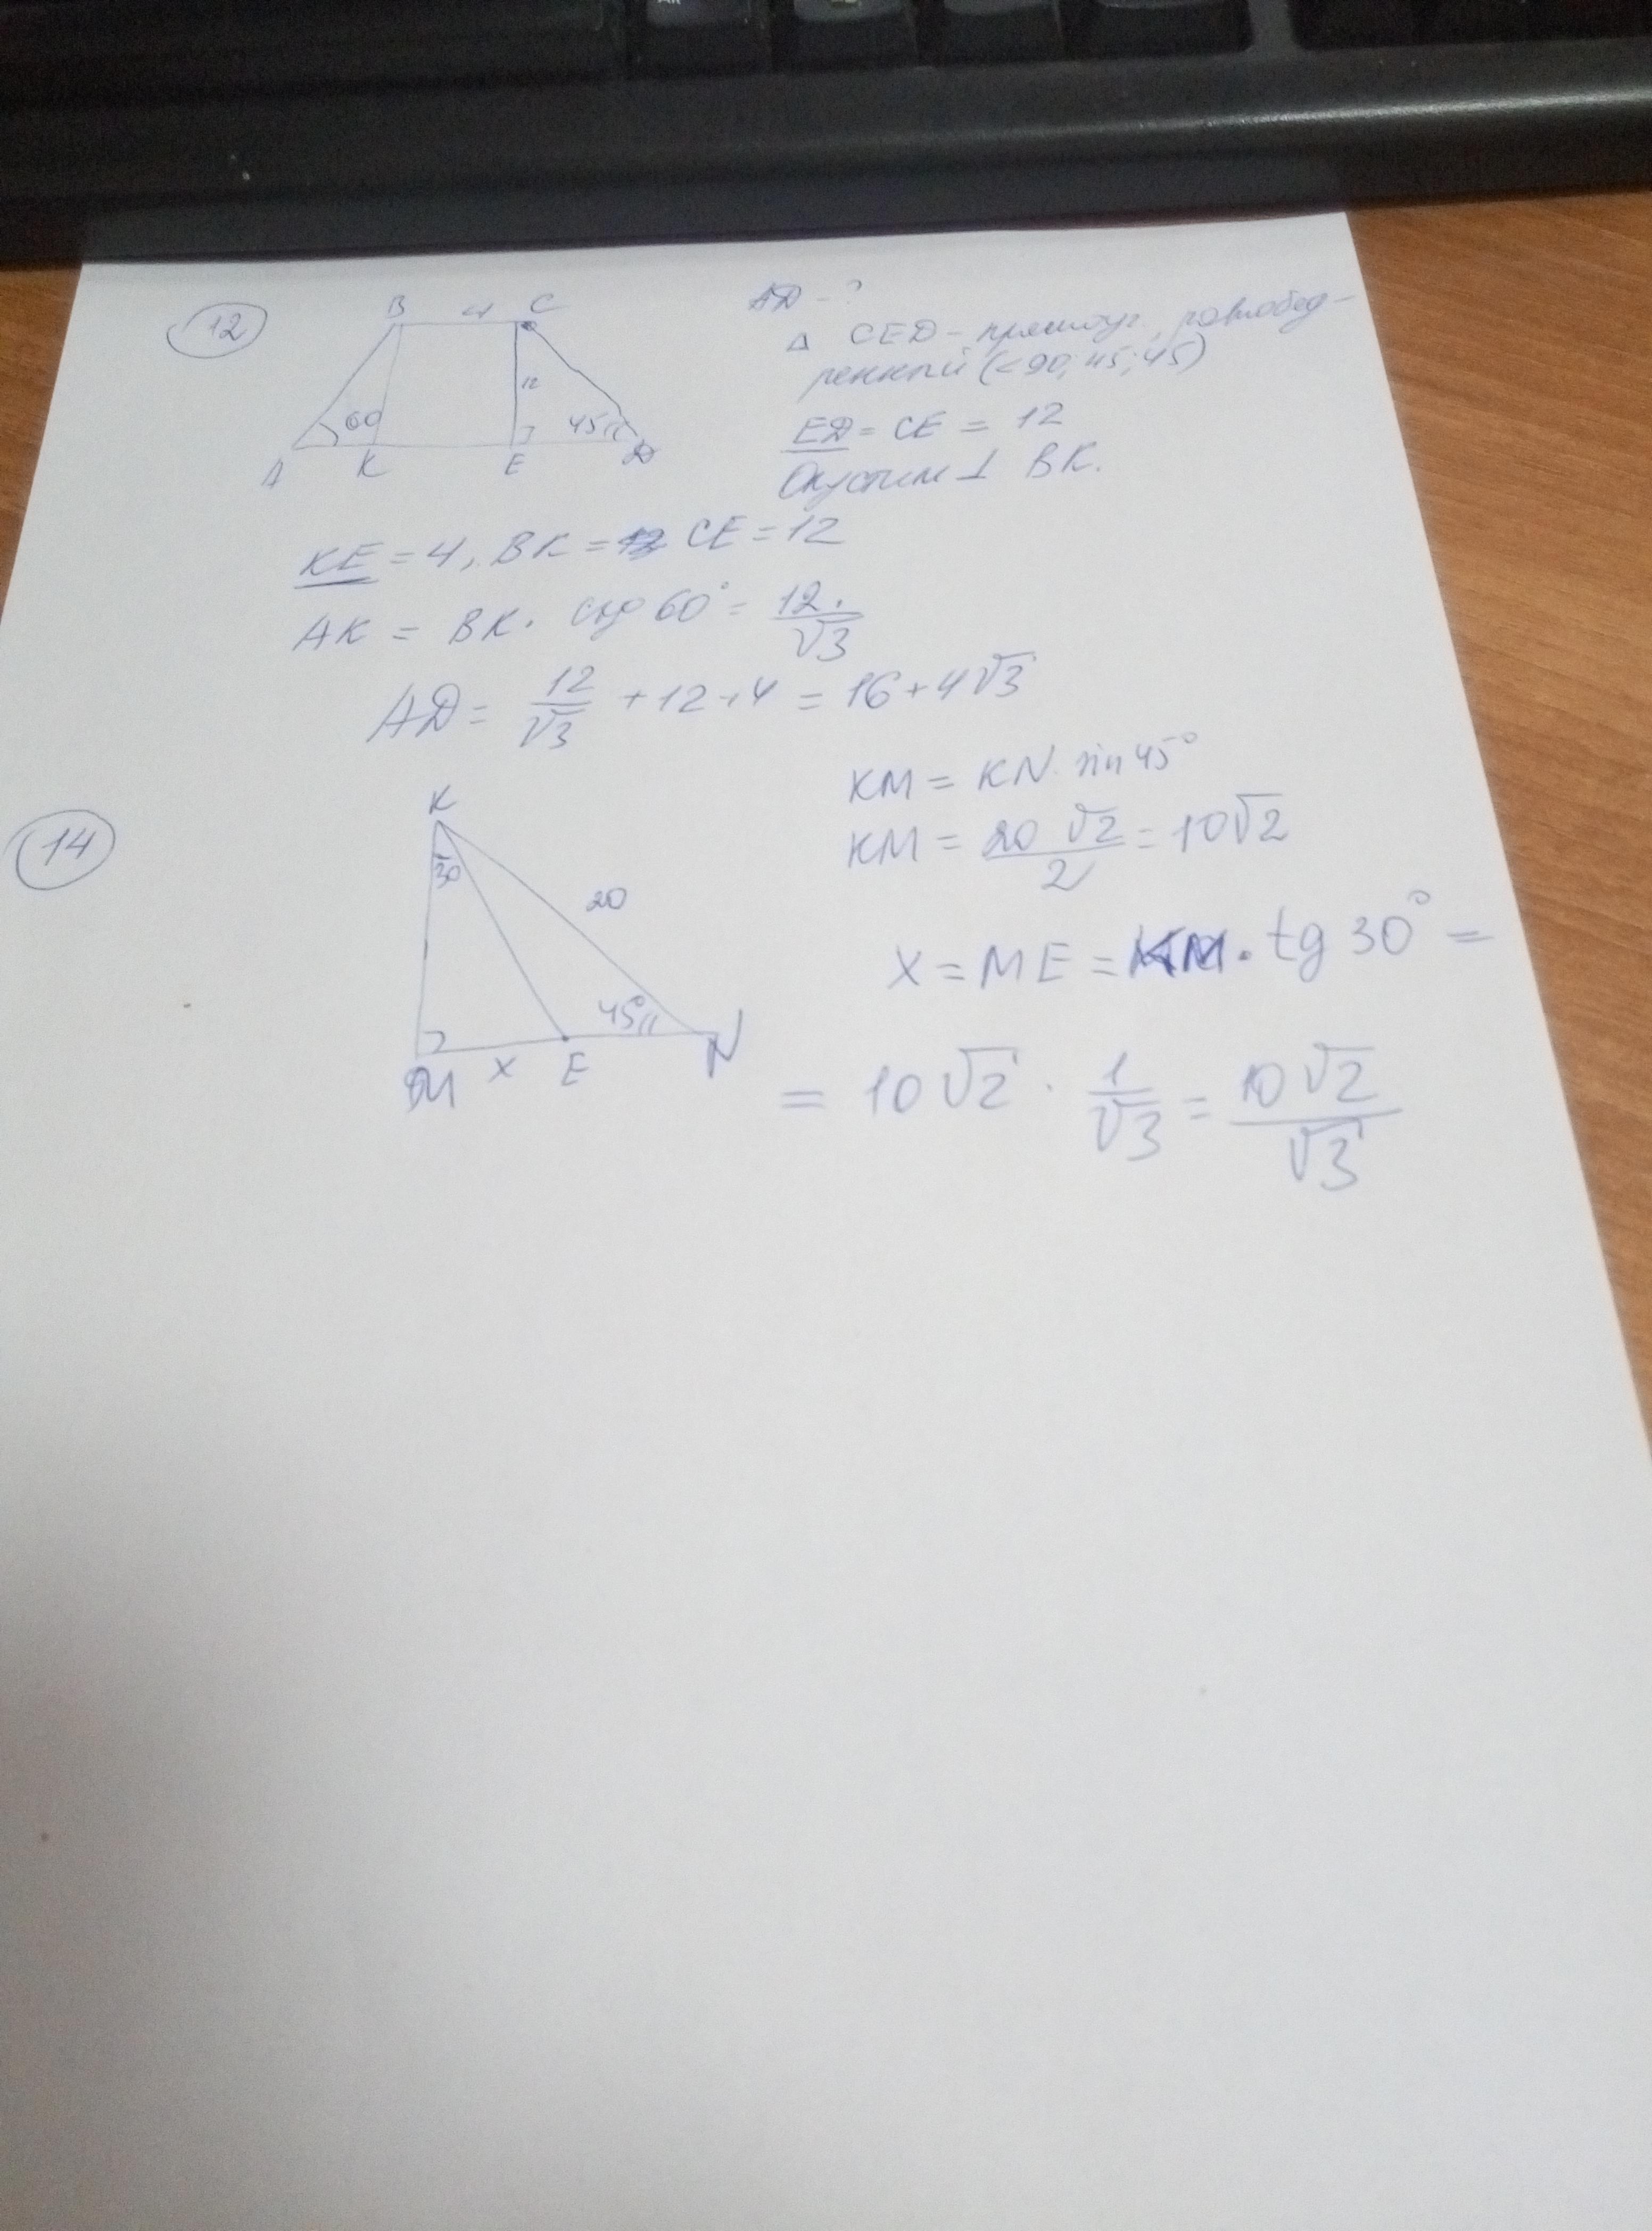 12
B 4 C
60 12 45
A K E D
AD - ?
Δ CED - прямоуг, равнобед-
ренный (< 90; 45; 45)
ED = CE = 12
Опустим ⊥ BK.
KE = 4, BK = CE = 12
AK = BK · ctg 60° = 12/√3
AD = 12/√3 + 12 + 4 = 16 + 4√3
14
K
30
20
45°
M x E N
KM = KN · sin 45°
KM = 20 √2/2 = 10√2
x = ME = KM · tg 30° =
= 10√2 · 1/√3 = 10√2/√3